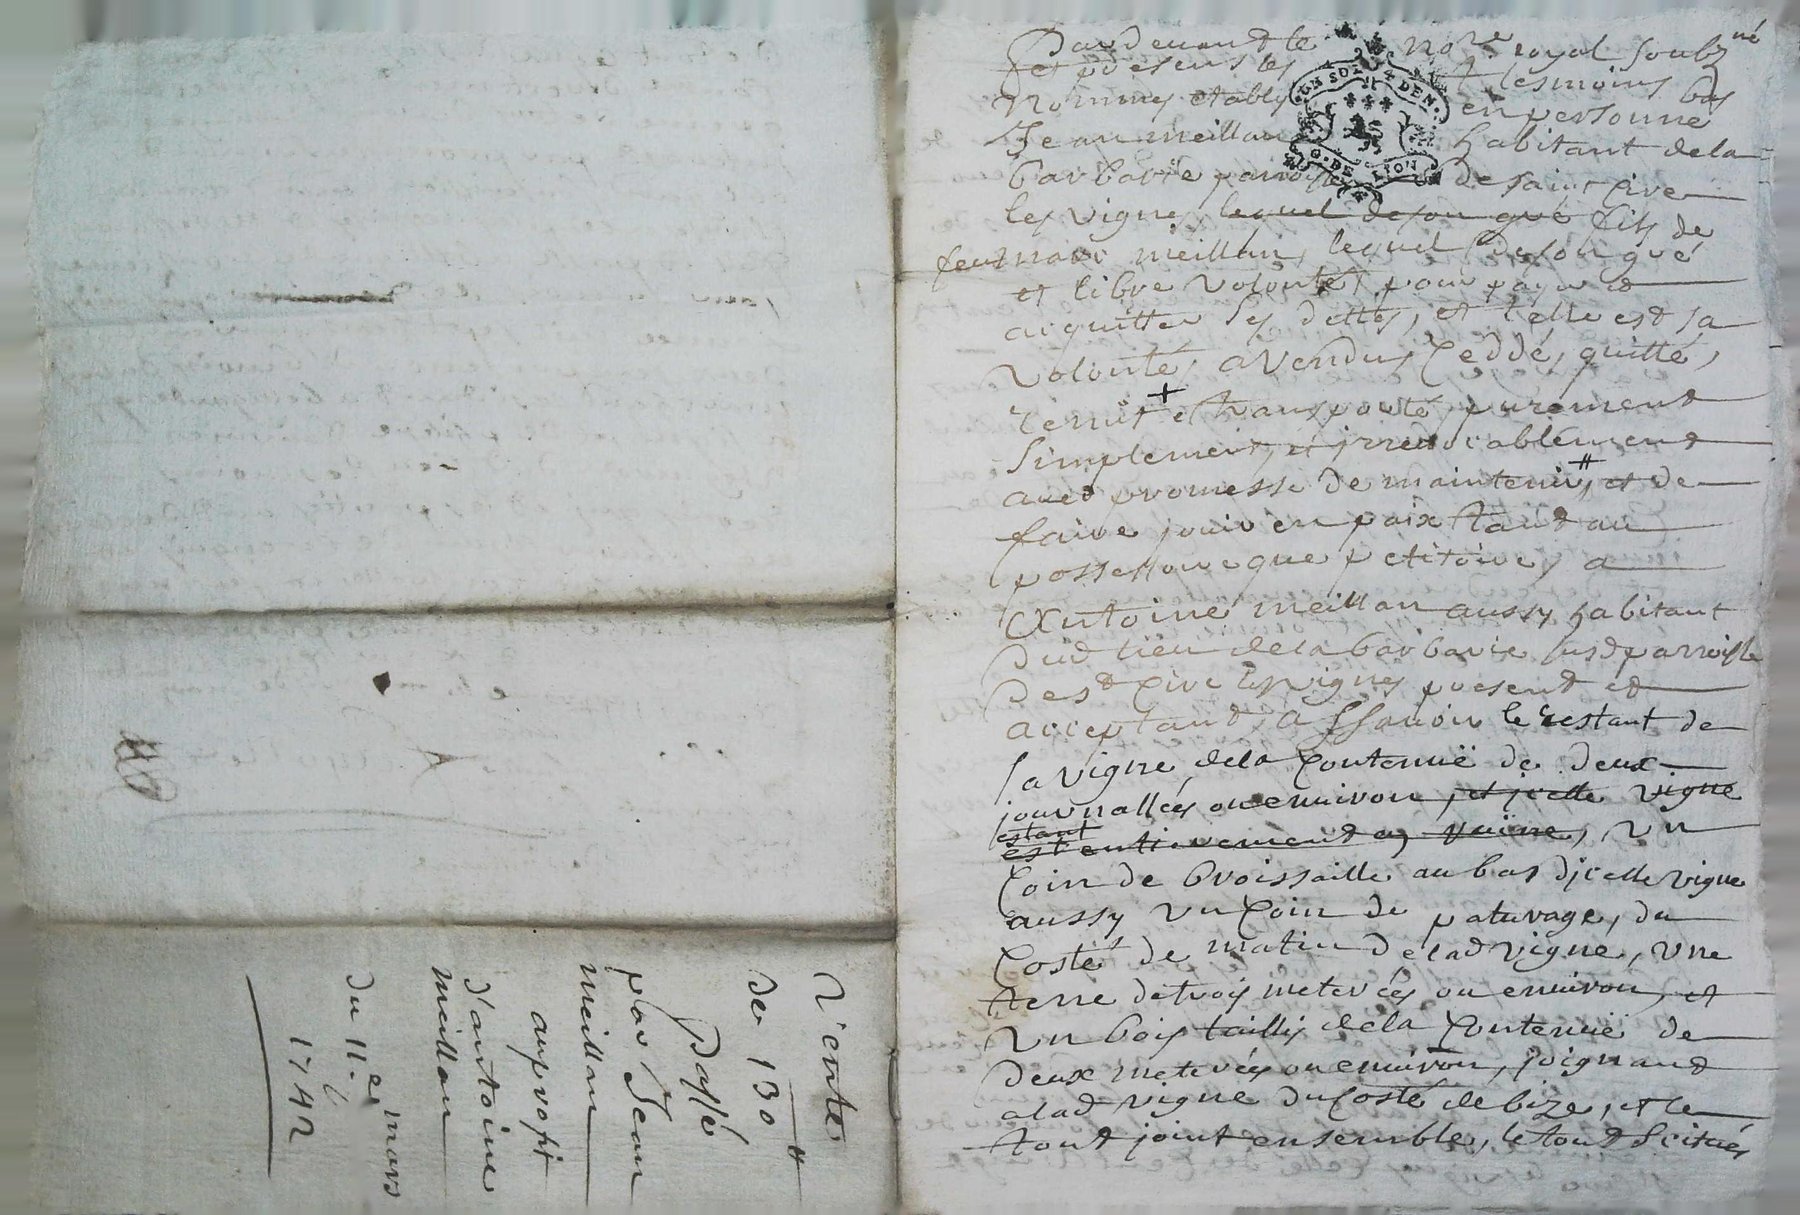 Pardevant le no.re royal soubz.né
et presens les tesmoins bas
Nommes estably en personne
Jean meillan habitant dela
barbarie parroisse de saint cire
les vignes, lequel de son gré fils de
feu marc meillan, lequel de son gré
et libre volonté, pour payer et
acquitter ses dettes, et telle est sa
volonté, a vendu, ceddé, quitté,
remit + et transporté, purement
simplement, et irrevocablement
avec promesse de maintenir, # et de
faire jouir en paix tant au
possessoire que petitoire, a
Antoine meillan aussy habitant
dud lieu dela barbarie susd parroisse
de st cire les vignes present et
acceptant, a sçavoir le restant de
sa vigne dela contenuë de deux
journallées ou environ, et icelle vigne
estant
est entierement en ruine, un
coin de broissaille au bas d'icelle vigne
aussy un coin de paturage, du
costé de matin de lad vigne, une
terre de trois meterées ou environ, et
un bois taillis dela contenuë de
deux meterées ou environ, joignant
a lad vigne du costé de bize, et le
tout joint ensemble, le tout scitués
UN SOL 4 DEN.
G. DE LION
Vente
de 130 ₶
passé
par Jean
meillan
au profit
d'antoine
meillan
du 11.e mars
1742